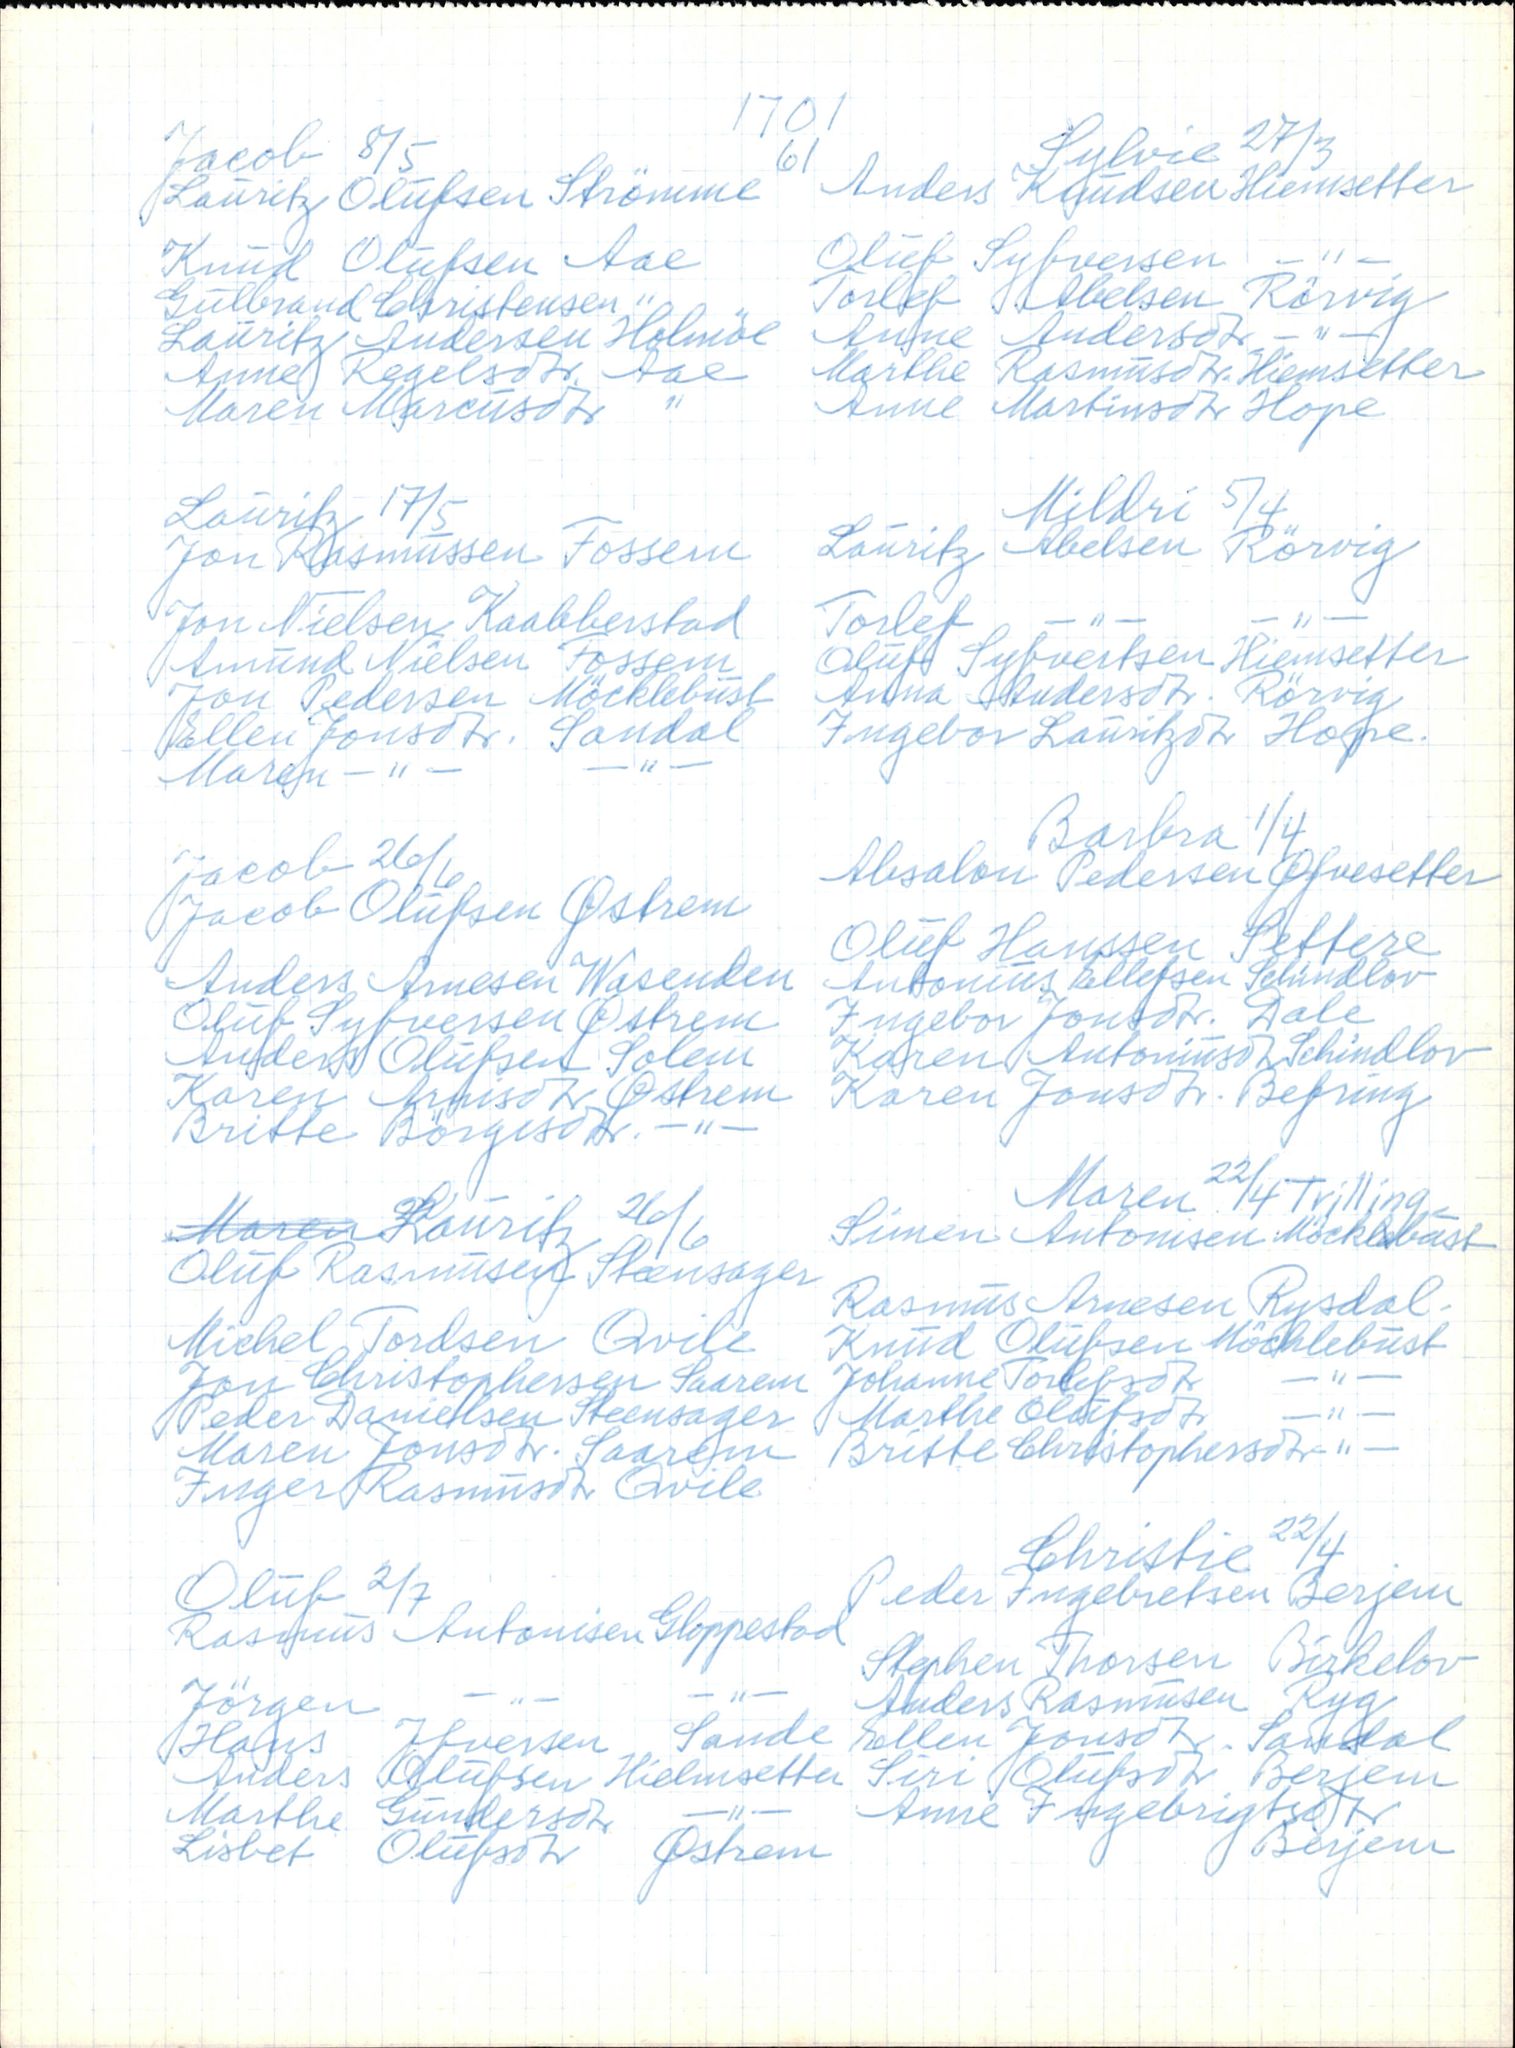 1701
61
Jacob 8/5
Lauritz Olufsen Strömme
Knud Olufsen Aae
Gulbrand Christensen "
Lauritz Andersen Holmöe
Anne Regelsdtr. Aae
Maren Marcusdtr "
Lauritz 17/5
Jon Rasmussen Fossem
Jon Nielsen Kaabberstad
Amund Nielsen Fossem
Jon Pedersen Möcklebust
Ellen Jonsdtr. Sandal
Maren - " - - " -
Jacob 26/6
Jacob Olufsen Østrem
Anders Arnesen Wasenden
Oluf Syfversen Østrem
Anders Olufsen Solem
Karen Arnisdtr Østrem
Britte Börgisdtr. - " -
Maren Lauritz 26/6
Oluf Rasmusen Steensager
Michel Tordsen Qvile
Jon Christophersen Saarem
Peder Danielsen Steensager
Maren Jonsdtr. Saarem
Inger Rasmusdtr Qvile
Oluf 2/7
Rasmus Antonisen Gloppestad
Jörgen - " - - " -
Hans Ifversen Sande
Anders Olufsen Hielmsetter
Marthe Gundersdtr - " -
Lisbet Olufsdtr Østrem
Sylvie 27/3
Anders Knudsen Hiemsetter
Oluf Syfversen - " -
Torlef Abelsen Rörvig
Anne Andersdtr - " -
Marthe Rasmusdtr. Hiemsetter
Anne Martinsdtr Hope
Mildri 5/4
Lauritz Abelsen Rörvig
Torlef - " - - " -
Oluf Syfvertsen Hiemsetter
Anna Andersdtr. Rörvig
Ingebor Lauritzdtr Hope.
Barbra 1/4
Absalon Pedersen Øfvesetter
Oluf Hanssen Settere
Antonius Ellefsen Schindlov
Ingebor Jonsdtr. Dale
Karen Antoniusdtr Schindlov
Karen Jonsdtr. Befring
Maren 22/4 Trilling
Simen Antonisen Möcklebust
Rasmus Arnesen Rysdal.
Knud Olufsen Möcklebust
Johanne Torlefsdtr - " -
Marthe Olufsdtr - " -
Britte Christophersdtr - " -
Christie 22/4
Peder Ingebretsen Berjem
Stephen Thorsen Birkelov
Anders Rasmusen Ryg
Ellen Jonsdtr. Sandal
Siri Olufsdtr Berjem
Anne Ingebrigtsdtr
Berjem